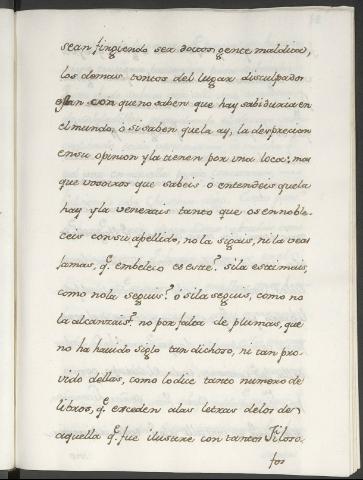 sean fingiendo ser doctos gente maldita,
los demas tontos del lugar disculpados
estan con que no saben que hay sabiduria en
el mundo, ó si saben que la ay, la desprecian
en su opinion y la tienen por una loca: mas
que vosotros que sabeis ó entendeis que la
hay y la venerais tanto que os ennoble-
ceis con su apellido, no la sigais, ni la veais
jamas, q.e embeleco es este? si la estimais,
como no la seguis? ó si la seguis, como no
la alcanzais? no por falta de plumas, que
no ha havido siglo tan dichoso, ni tan pro-
vido dellas, como lo dice tanto numero de
libros, q.e exceden a las letras de los de
aquella q.e fue ilustre con tantos Filoso-
fos